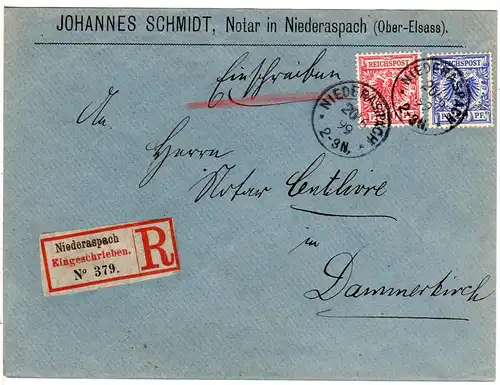 JOHANNES SCHMIDT, Notar in Niederaspach (Ober-Elsass).
Einschreiben
REICHSPOST
REICHSPOST
NIEDERASPACH
99
2-3N.
NIEDERASPACH
2-3N.
PF.
An
Herrn
Notar Centlivre
in
Dammerkirch
Niederaspach
Eingeschrieben.
No 379.
R